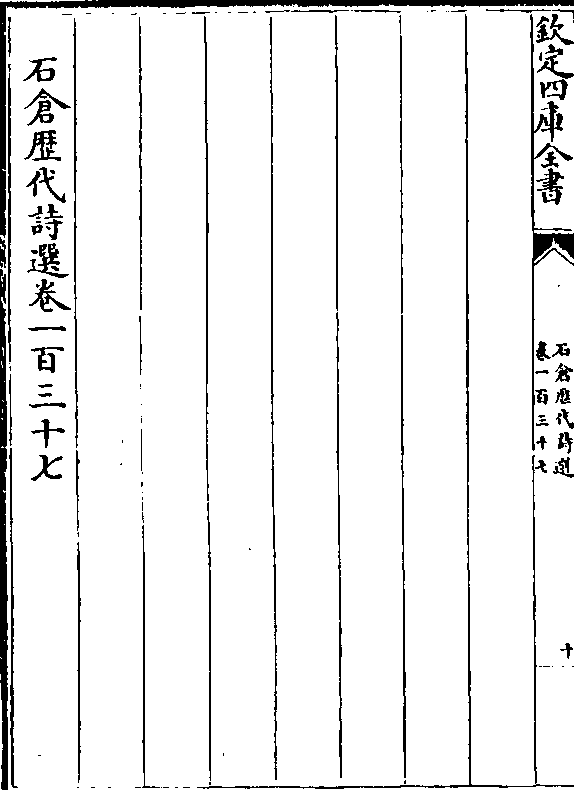 欽定四庫全書
石倉歴代詩選
卷一百三十七
十
石倉歴代詩選卷一百三十七